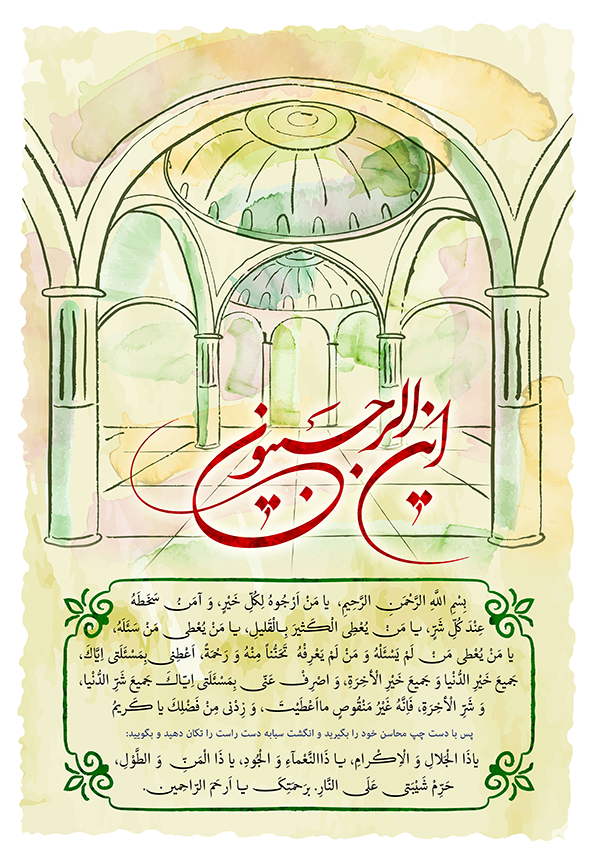 این الرجبیون
بِسْمِ اللَّهِ الرَّحْمَنِ الرَّحِیمِ، یا مَنْ اَرْجُوهُ لِکُلِّ خَیْرٍ، وَ آمَنُ سَخَطَهُ
عِنْدَ کُلِّ شَرٍّ، یـا مَنْ یُعْطِی الْکَثیرَ بِـالْقَلیلِ، یـا مَنْ یُعْطی مَنْ سَئَلَهُ،
یا مَنْ یُعْطی مَنْ لَمْ یَسْئَلْهُ وَ مَنْ لَمْ یَعْرِفْهُ تَحَنُّناً مِنْهُ وَ رَحْمَةً، اَعْطِنی بِمَسْئَلَتی اِیَّاکَ،
جَمیعَ خَیْرِ الدُّنْیا وَ جَمیعَ خَیْرِ الْأخِرَةِ، وَ اصْرِفْ عَنّی بِمَسْئَلَتی اِیّاکَ جَمیعَ شَرِّ الدُّنْیا،
وَ شَرِّ الْأخِرَةِ، فَاِنَّهُ غَیْرُ مَنْقُوصٍ مااَعْطَیْتَ، وَ زِدْنی مِنْ فَضْلِکَ یا کَریمُ
پس با دست چپ محاسن خود را بگیرید و انگشت سبابه دست راست را تکان دهید و بگویید:
یاذَا الْجَلالِ وَ الْاِکْرامِ، یـا ذَاالنَّعْمآءِ وَ الْجُودِ، یا ذَا الْمَنِّ وَ الطَّوْلِ،
حَرِّمْ شَیْبَتی عَلَی النَّارِ. بِرَحمَتِکَ یـا اَرحَمَ الرّاحِمین.